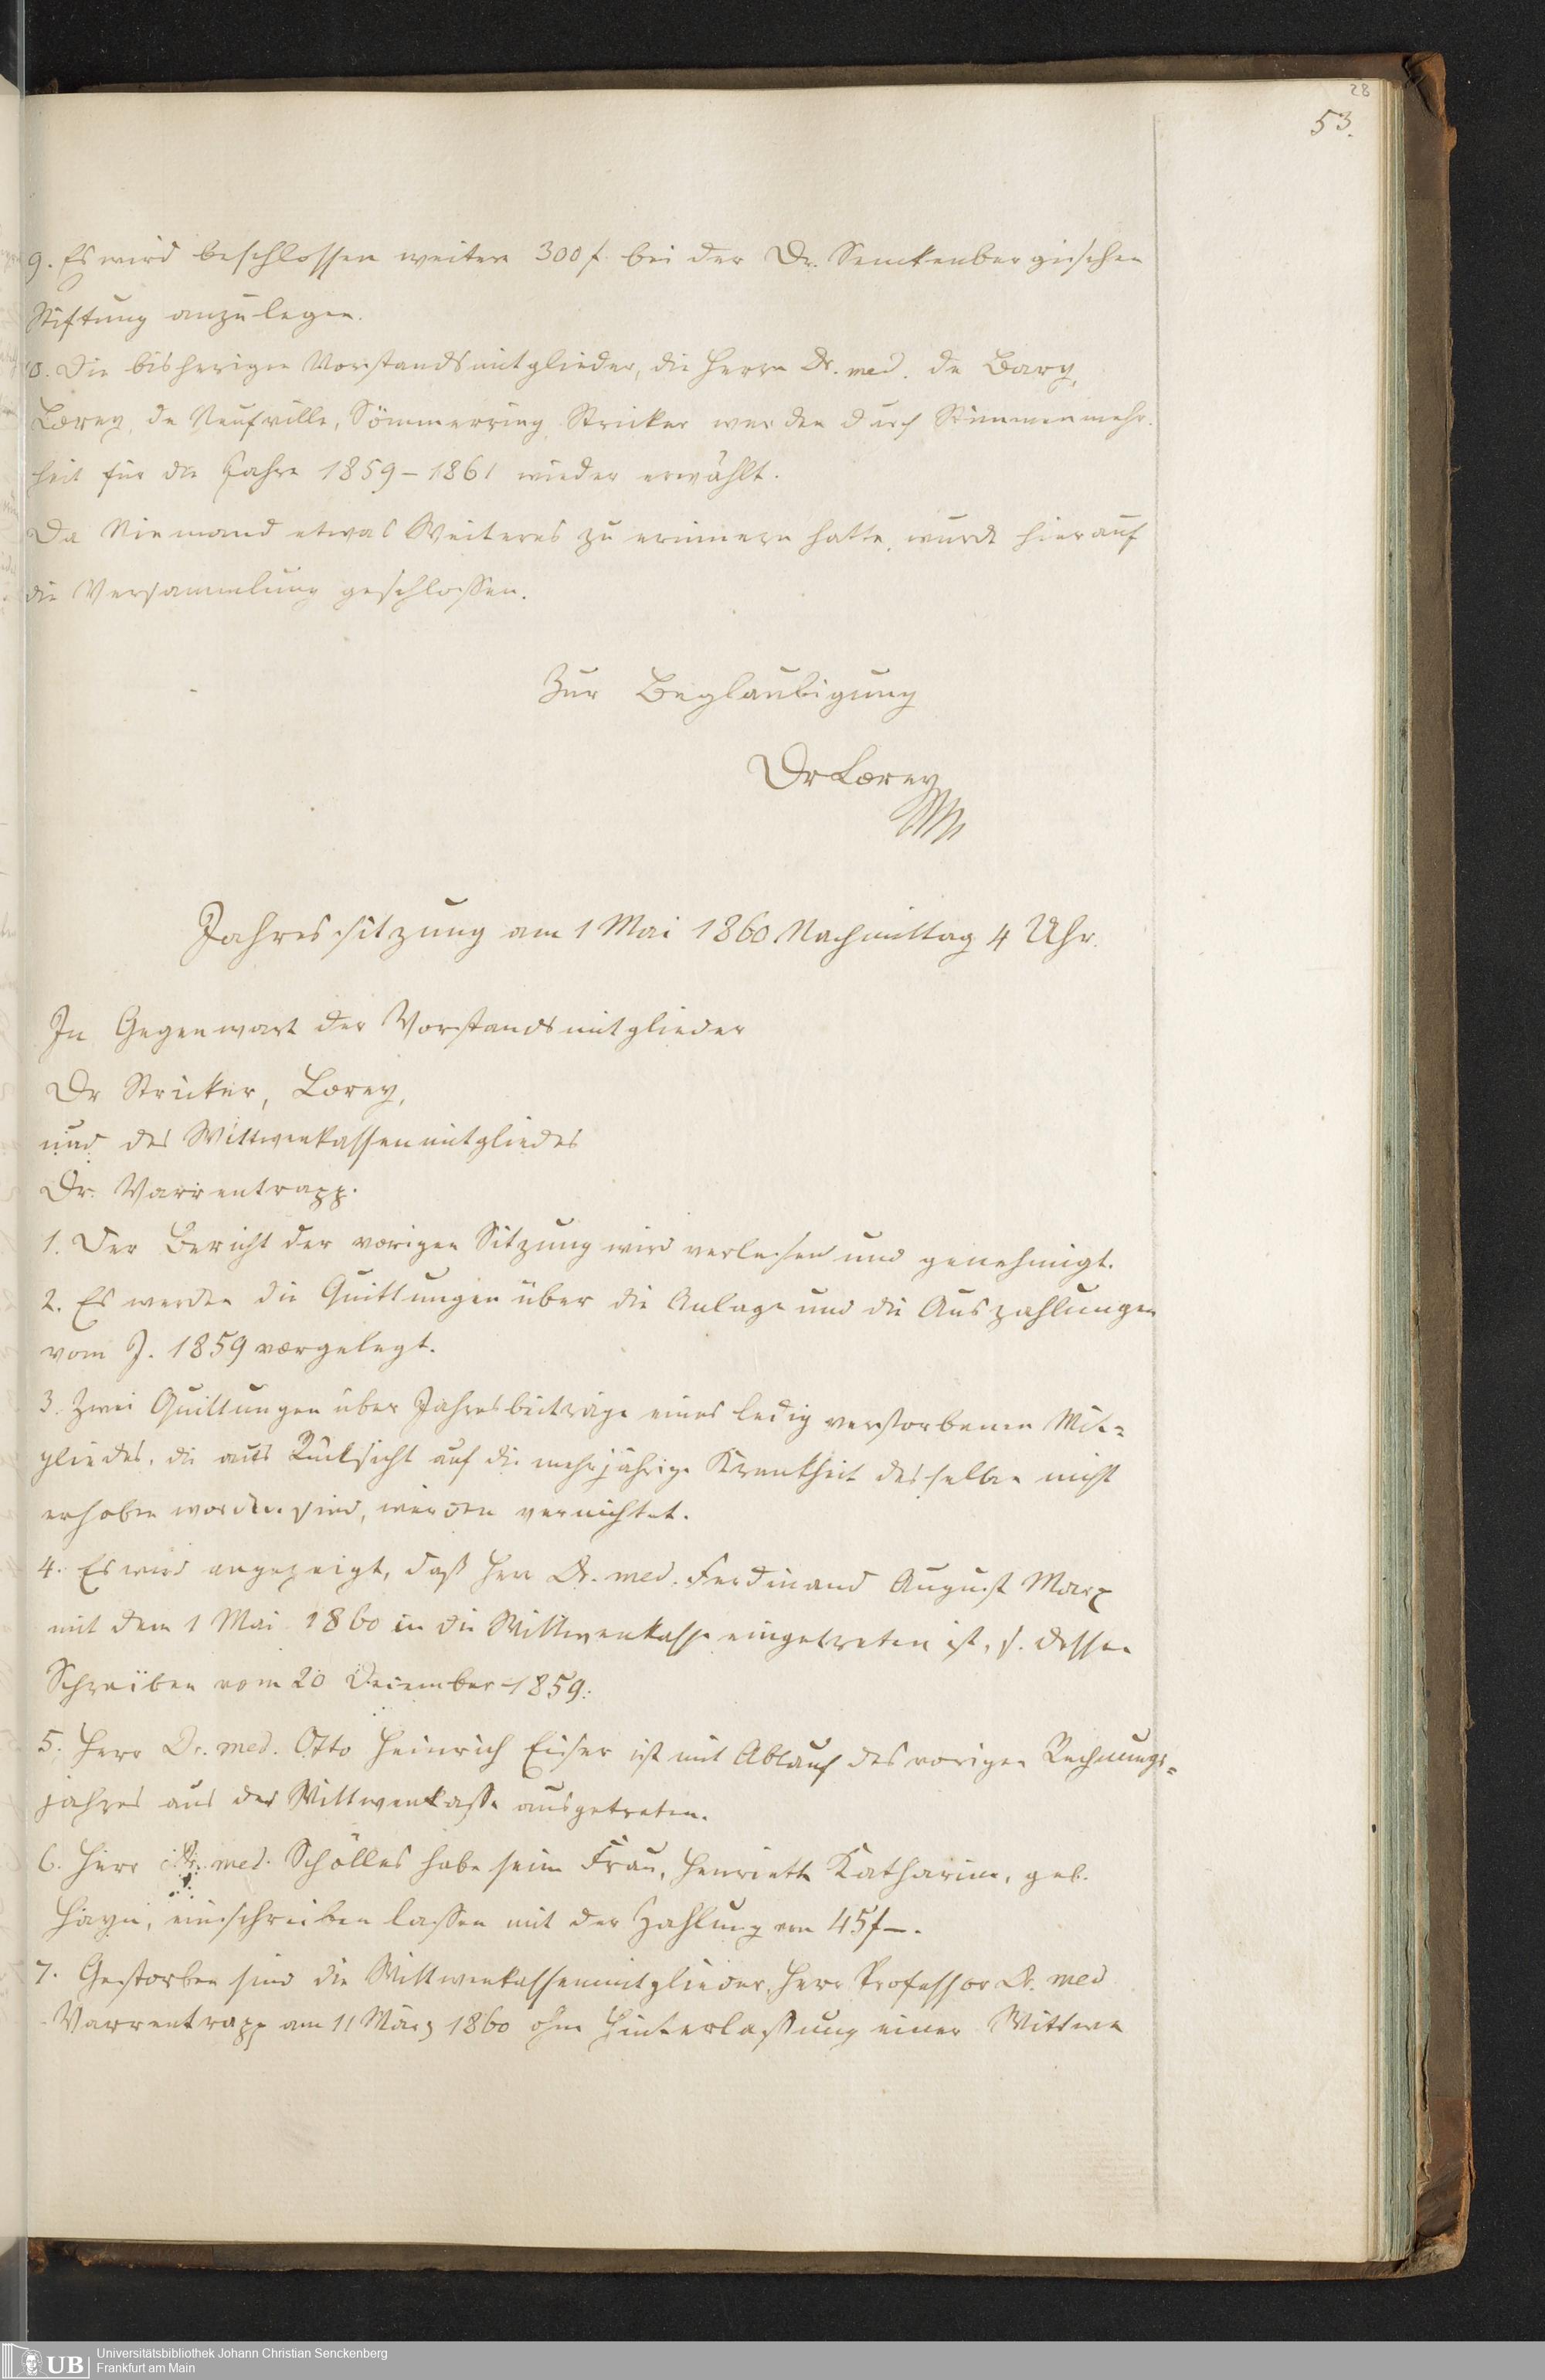 28
53.
9. Es wird beschlossen weitere 300 f. bei der Dr. Senckenbergischen
Stiftung anzulegen.
10. Die bisherigen Vorstandsmitglieder, die Herrn Dr. med. de Bary,
Lorey, de Neufville, Sömmerring, Stricker werden durch Stimmenmehr-
heit für die Jahre 1859–1861 wieder erwählt.
Da Niemand etwas Weiteres zu erinnern hatte, wurde hierauf
die Versammlung geschlossen.
Zur Beglaubigung
Dr Lorey
Jahressitzung am 1 Mai 1860 Nachmittag 4 Uhr.
In Gegenwart der Vorstandsmitglieder
Dr Stricker, Lorey,
und des Wittwenkassenmitgliedes
Dr. Varrentrapp.
1. Der Bericht der vorigen Sitzung wird verlesen und genehmigt.
2. Es werden die Quittungen über die Anlage und die Auszahlungen
vom J. 1859 vorgelegt.
3. Zwei Quittungen über Jahresbeiträge eines ledig verstorbenen Mit=
gliedes, die aus Rücksicht auf die mehrjährige Krankheit desselben nicht
erhoben worden sind, werden vernichtet.
4. Es wird angezeigt, daß Herr Dr. med. Ferdinand August Marx
mit dem 1 Mai 1860 in die Wittwenkasse eingetreten ist, s. dessen
Schreiben vom 20 December 1859.
5. Herr Dr. med. Otto Heinrich Eiser ist mit Ablauf des vorigen Rechnungs=
jahres aus der Wittwenkasse ausgetreten.
6. Herr Dr. med. Schölles habe seine Frau, Henriette Katharine, geb.
Hayn, einschreiben lassen mit der Zahlung von 45 f –.
7. Gestorben sind die Wittwenkassenmitglieder, Herr Professor Dr. med
Varrentrapp am 11 März 1860 ohne Hinterlassung einer Wittwe
Universitätsbibliothek Johann Christian Senckenberg
UB Frankfurt am Main